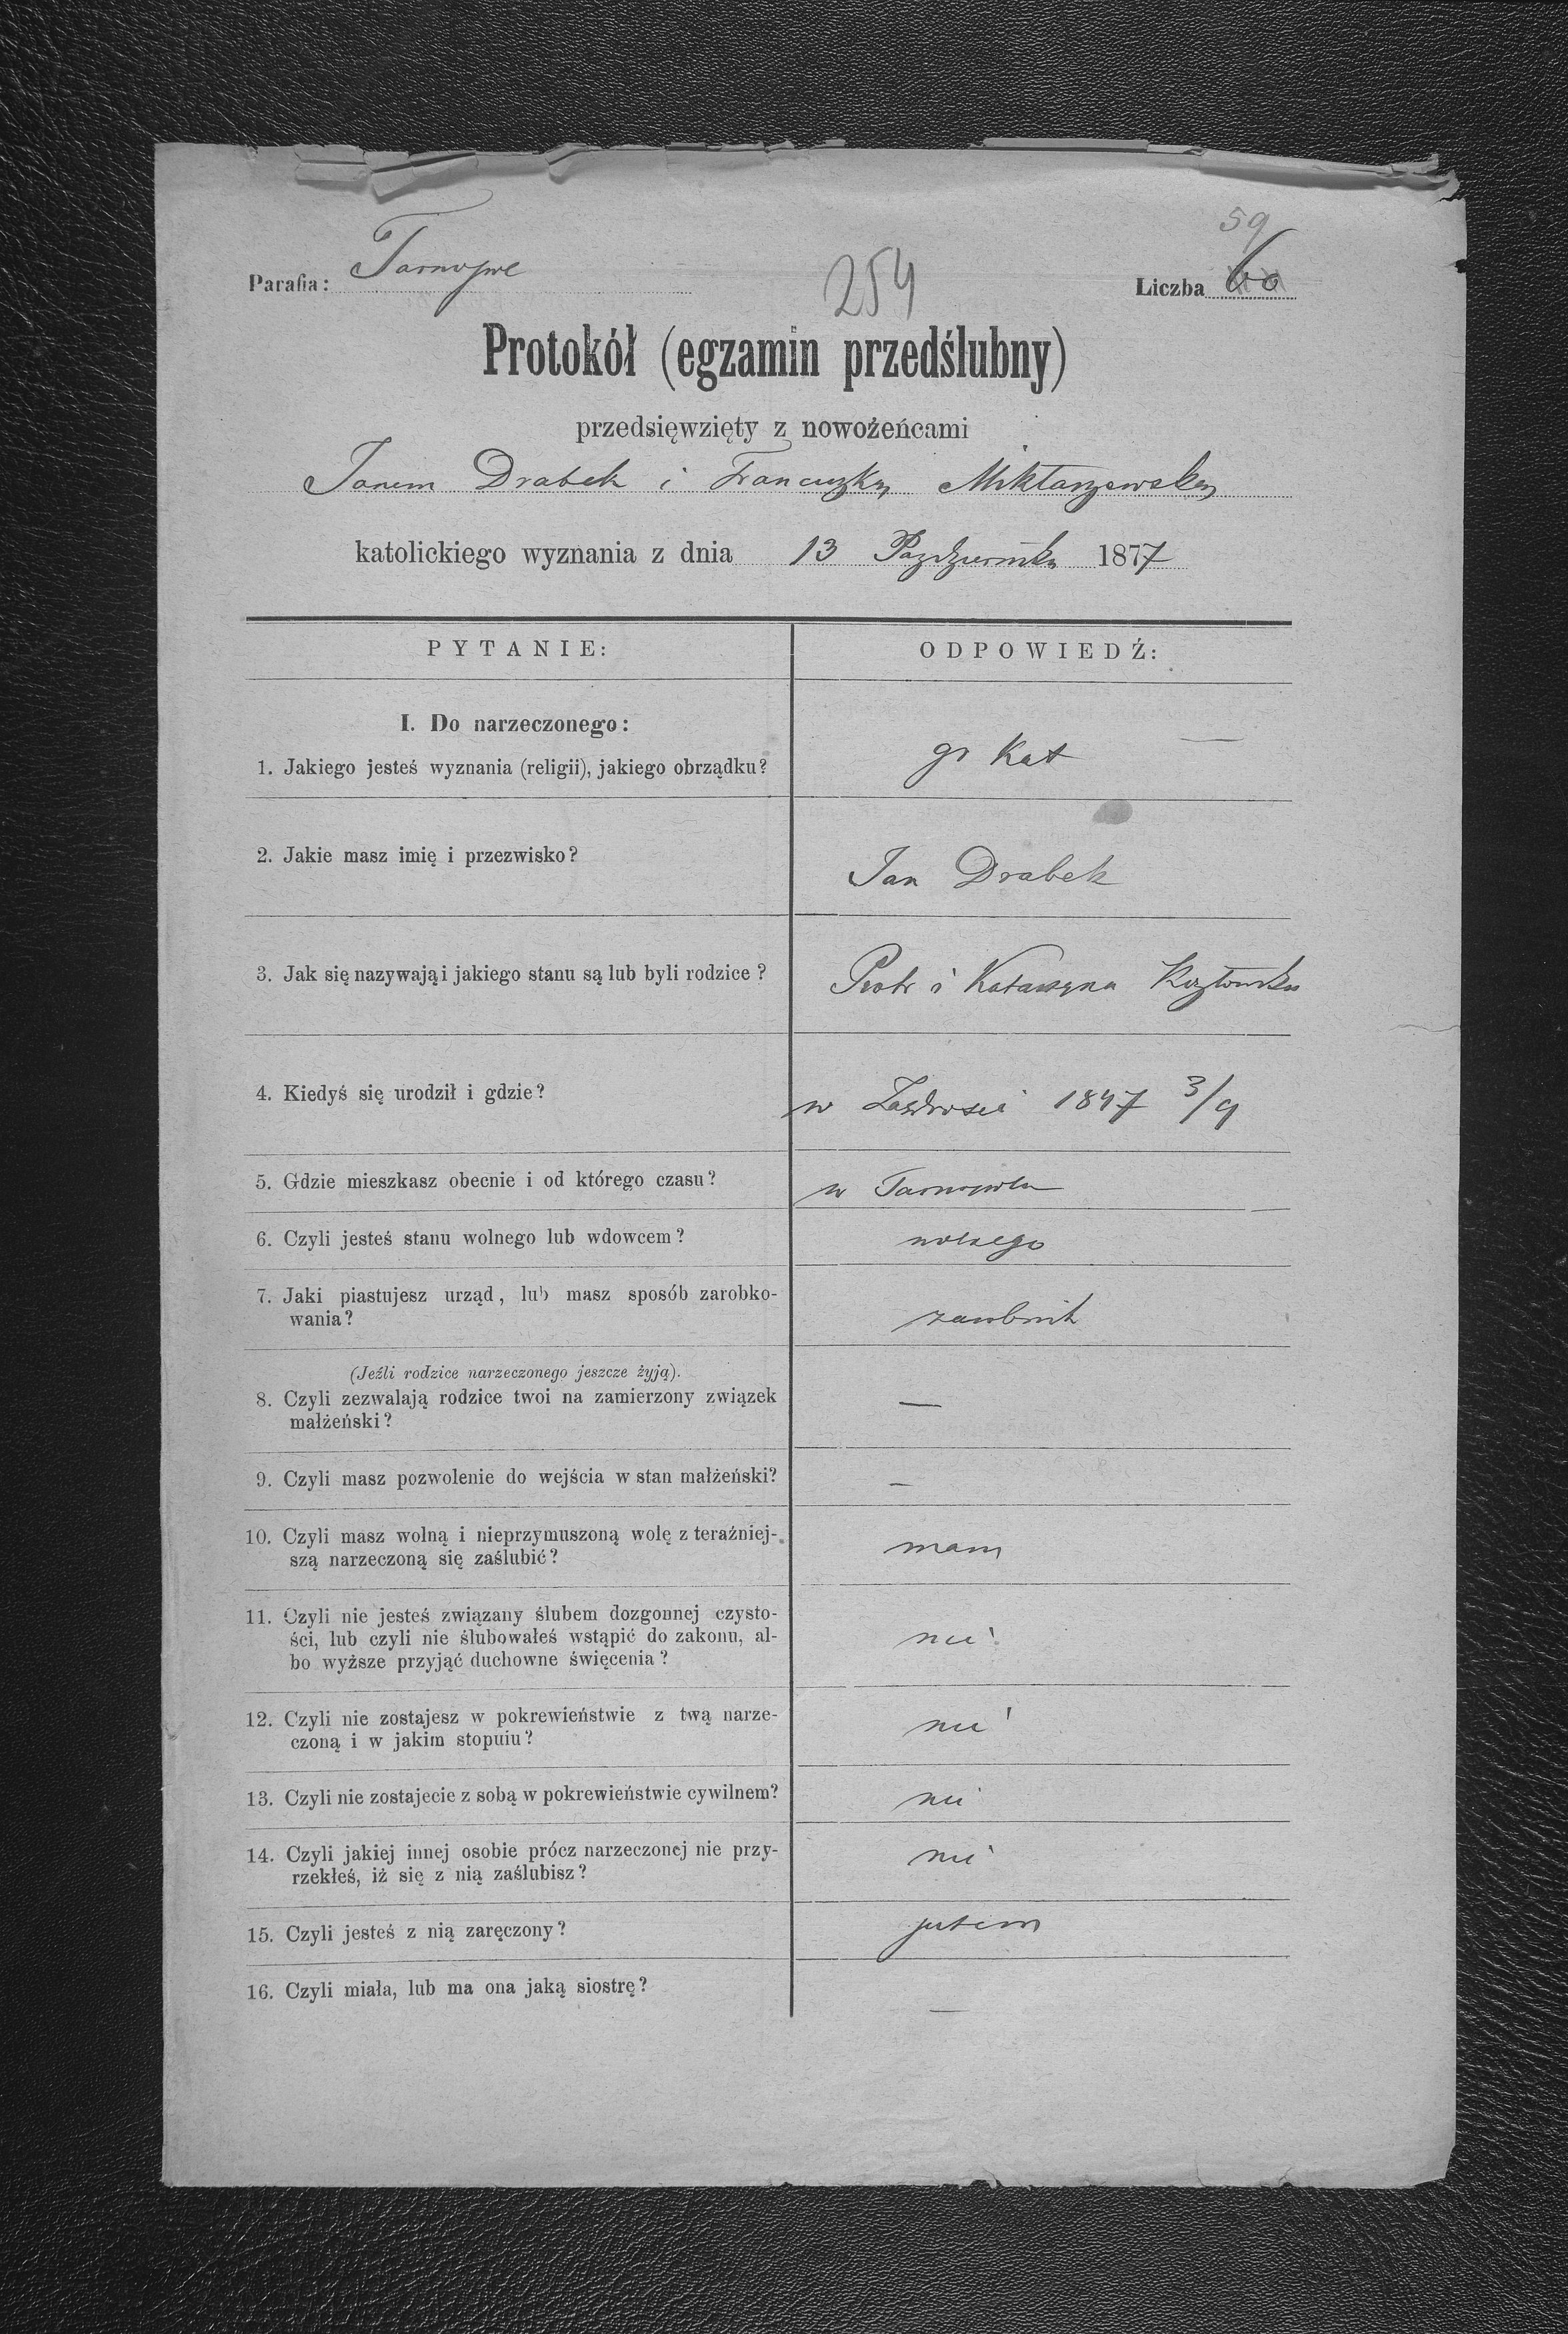 59
Parafia: Tarnopol
254
Liczba 60
Protokół (egzamin przedślubny)
przedsięwzięty z nowożeńcami
Janem Drabek i Franciszką
katolickiego wyznania z dnia 13 Października 1877
PYTANIE:
ODPOWIEDŹ:
I. Do narzeczonego:
1. Jakiego jesteś wyznania (religii), jakiego obrządku?
gr Kat
2. Jakie masz imię i przezwisko?
Jan Drabek
3. Jak się nazywają i jakiego stanu są lub byli rodzice?
Piotr i Katarzyna
4. Kiedyś się urodził i gdzie?
w 1847 3/9
5. Gdzie mieszkasz obecnie i od którego czasu?
w Tarnopolu
6. Czyli jesteś stanu wolnego lub wdowcem?
wolnego
7. Jaki piastujesz urząd, lub masz sposób zarobko-
wania?
zarobnik
(Jeźli rodzice narzeczonego jeszcze żyją).
8. Czyli zezwalają rodzice twoi na zamierzony związek
małżeński?
—
9. Czyli masz pozwolenie do wejścia w stan małżeński?
—
10. Czyli masz wolną i nieprzymuszoną wolę z teraźniej-
szą narzeczoną się zaślubić?
mam
11. Czyli nie jesteś związany ślubem dozgonnej czysto-
ści, lub czyli nie ślubowałeś wstąpić do zakonu, al-
bo wyższe przyjąć duchowne święcenia?
nie
12. Czyli nie zostajesz w pokrewieństwie z twą narze-
czoną i w jakim stopuiu?
nie
13. Czyli nie zostajecie z sobą w pokrewieństwie cywilnem?
nie
14. Czyli jakiej innej osobie prócz narzeczonej nie przy-
rzekłeś, iż się z nią zaślubisz?
nie
15. Czyli jesteś z nią zaręczony?
jestem
16. Czyli miała, lub ma ona jaką siostrę?
—